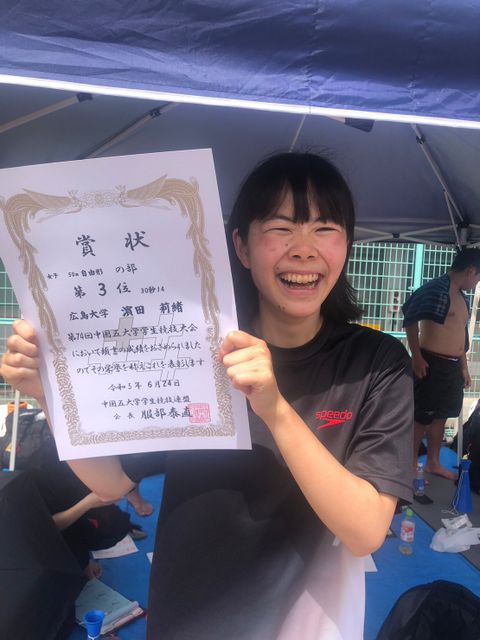 賞 状
女子 50m 自由形 の部
第 3 位 30秒14
広島大学 濱田 莉緒
第74回中国五大学学生競技大会
において頭書の成績をおさめられました
のでその栄誉を称えこれを表彰します
令和5年 6月24日
中国五大学学生競技連盟
会長 服部泰直
speedo